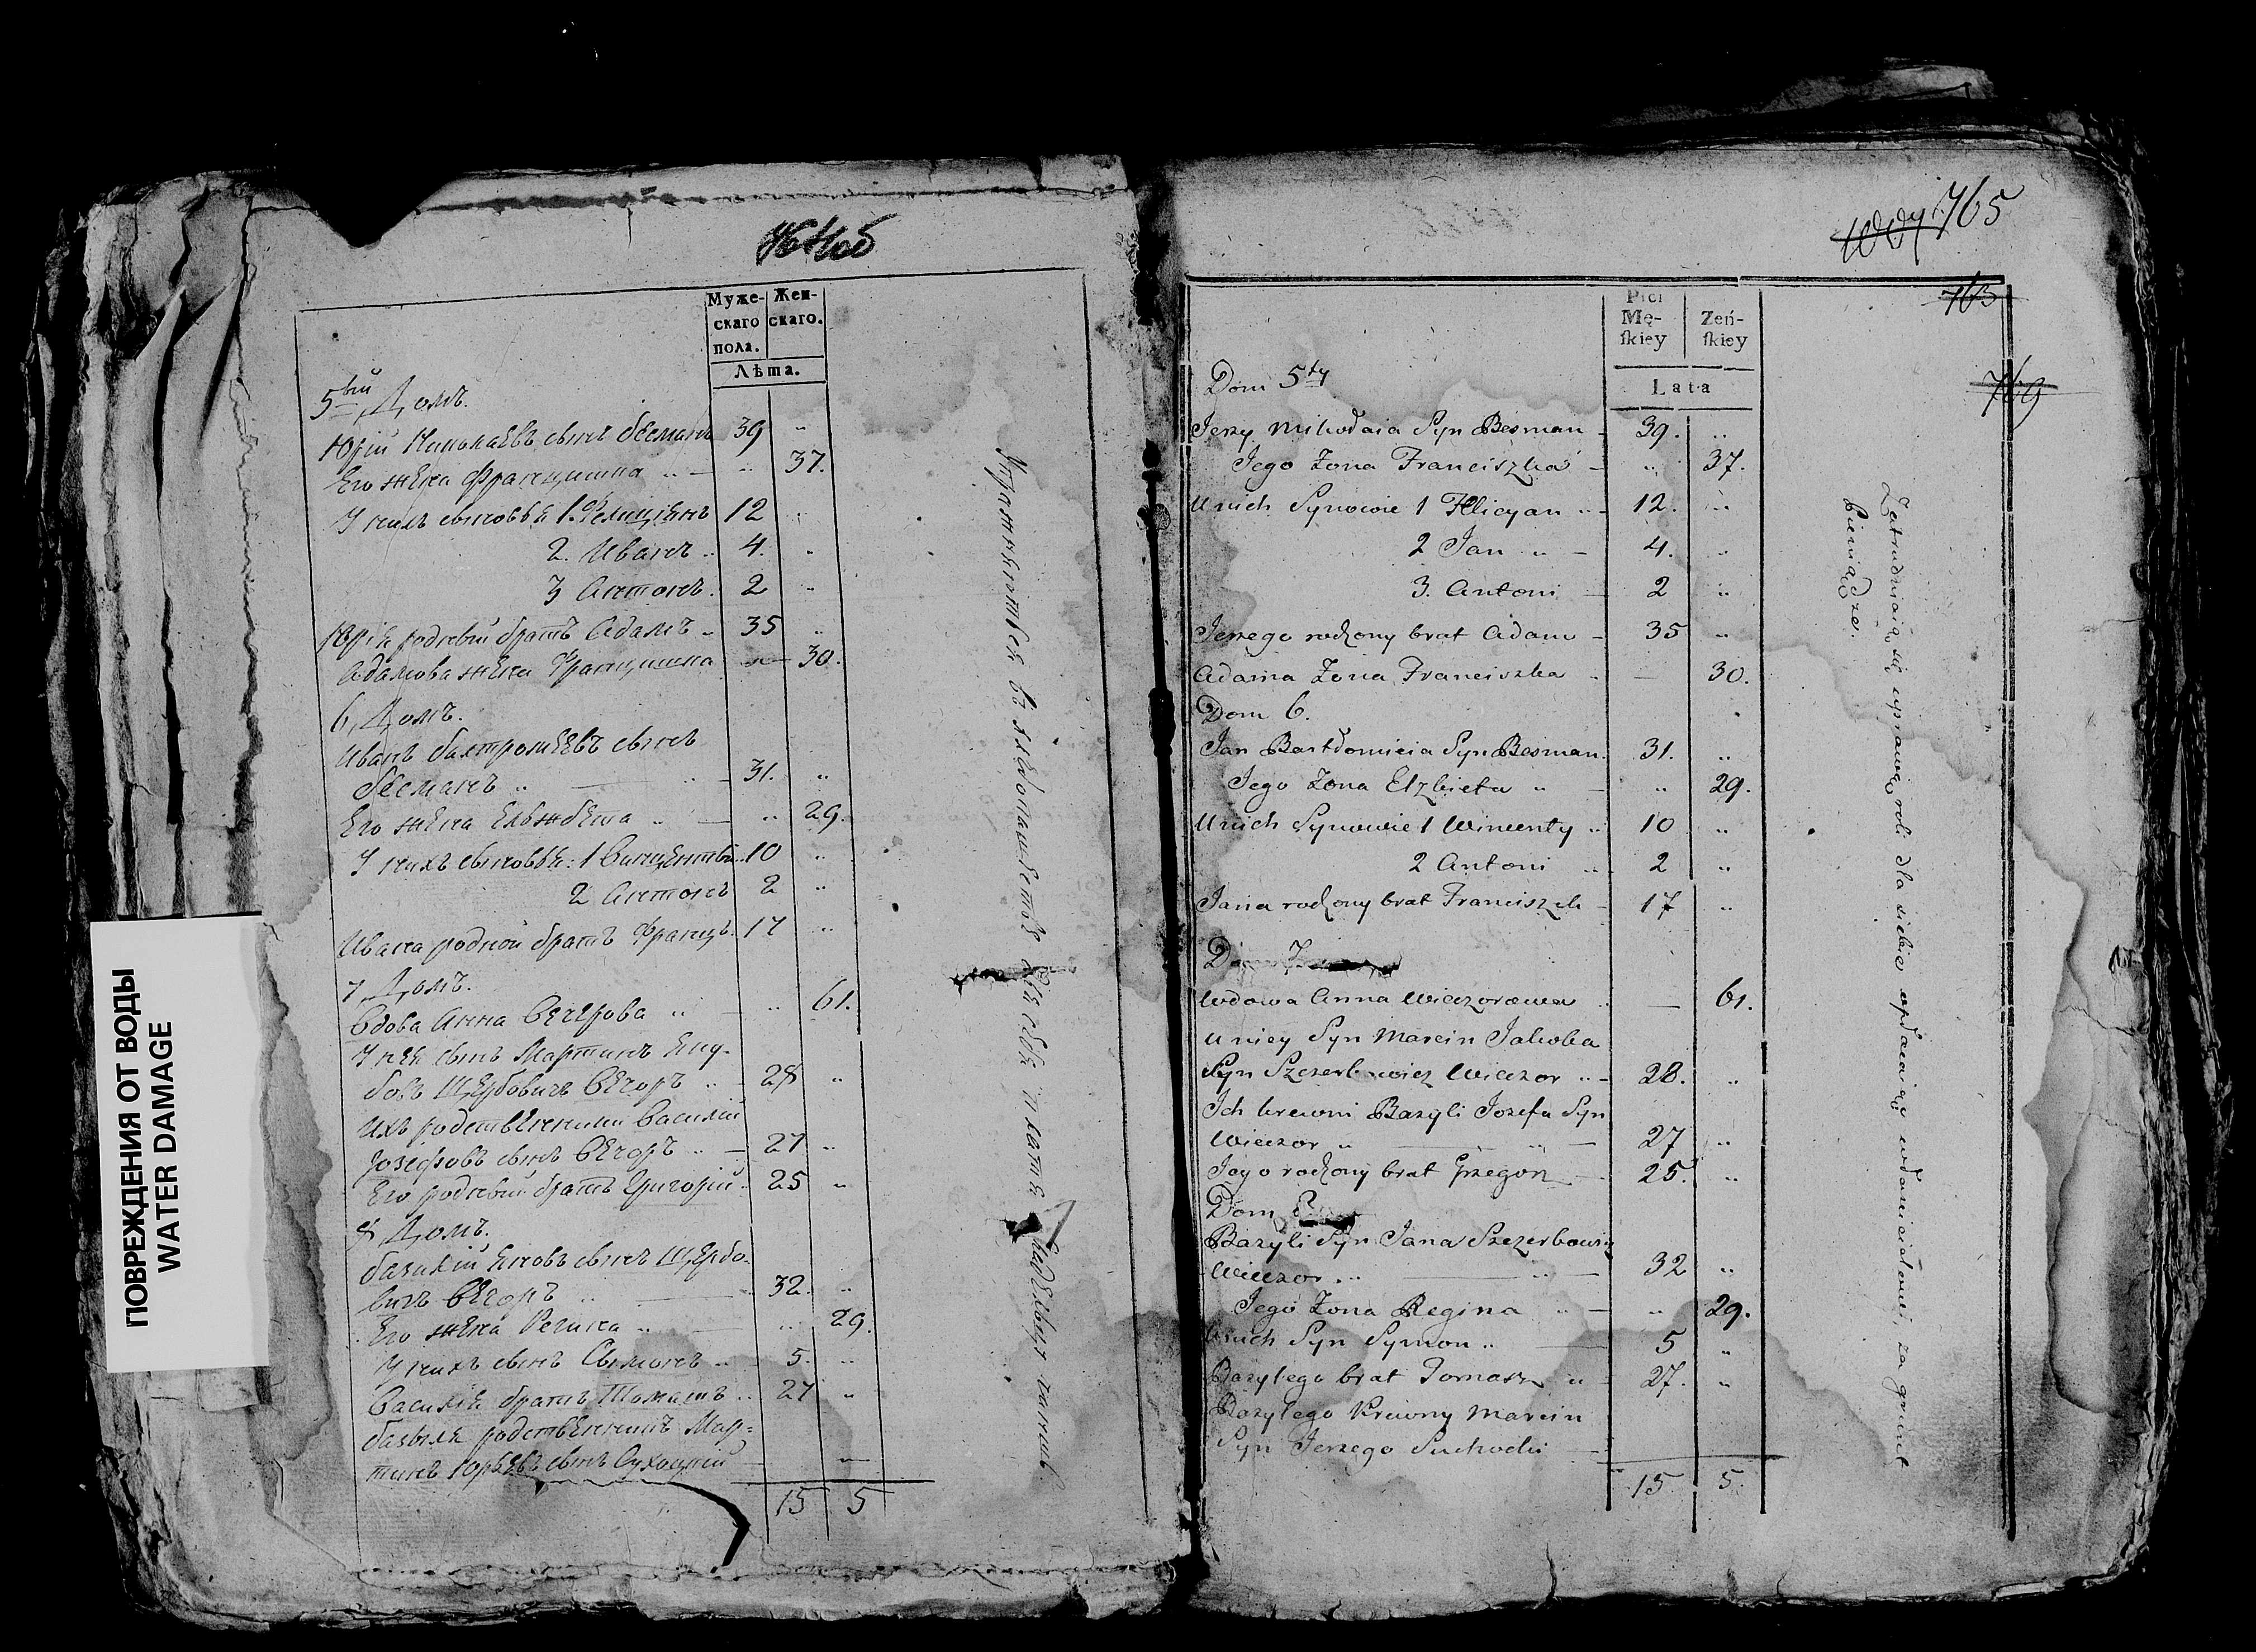 ПОВРЕЖДЕНИЯ ОТ ВОДЫ
WATER DAMAGE
Муже- Жен-
скаго скаго.
пола.
Лѣта.
5тый Домъ.
Юрій Николаевъ сынъ Бесманъ 39 "
Его жена Францишка " — " 37.
У нихъ сыновья 1. Фелиціянъ 12 "
2. Иванъ " 4. "
3 Антонъ. 2 "
Юрія родный братъ Адамъ " 35 "
Адамова жена Францишка — 30.
6, Домъ.
Иванъ Балтромѣевъ сынъ
Бесманъ " — 31. "
Его жена Ельжбета " — " 29.
У нихъ сыновья: 1 Винцентій 10 "
2 Антонъ 2 "
Ивана родной братъ Францъ. 17 "
7, Домъ.
Вдова Анна Вечерова " " 61.
У нея сынъ Мартинъ Яку-
бовъ Щербовичъ Вечоръ " 28 "
Ихъ родственники Василій
Іозефовъ сынъ Вечоръ " — 27 "
Его родный братъ Григорій 25 "
8, Домъ.
Базилій Яновъ сынъ Щербо-
вичъ Вечоръ " — 32. "
Его жена Регина " — " 29.
У нихъ сынъ Сымонъ " 5. "
Василія братъ Томашъ " 27 "
Базыля родственникъ Мар-
тинъ Юрьевъ сынъ Сухоцкій — —
15 5
Упражняются въ хлебопашестве для себя
765
763
769
Płci
Mę- Zeń-
ſkiey ſkiey
Lata
Dom 5ty
Jerzy Mikołaia Syn Besman - 39. "
Jego Zona Franciszka - " 37.
U nich Synowie 1 Felicyan " - 12. "
2 Jan " - 4. "
3. Antoni — 2 "
Jerzego rodzony brat Adam - 35 "
Adama Zona Franciszka - — 30.
Dom 6.
Jan Bartłomieia Syn Besman. 31. "
Jego Zona Elzbieta " - " 29.
U nich Synowie 1 Wincenty " 10 "
2 Antoni " 2 "
Jana rodzony brat Franciszek - 17 "
Dom 7
Wdowa Anna Wieczorowa " — 61.
U niey Syn Marcin Jakoba
Syn Szczerbowicz Wieczor " - 28. "
Ich krewni Bazyli Jozefa Syn
Wieczor " — " — 27 "
Jego rodzony brat Grzegorz — 25. "
Dom 8
Bazyli Syn Jana Szczerbowicz
Wieczor " — " — 32 "
Jego Zona Regina " — " 29.
U nich Syn Symon " — 5 "
Bazylego brat Tomasz " - 27. "
Bazylego Krewny Marcin
Syn Jerzego Suchocki —
15 5.
Zatrudniaią się uprawą roli dla siebie opłacaiąc właścicielowi za grunt
pieniądze.